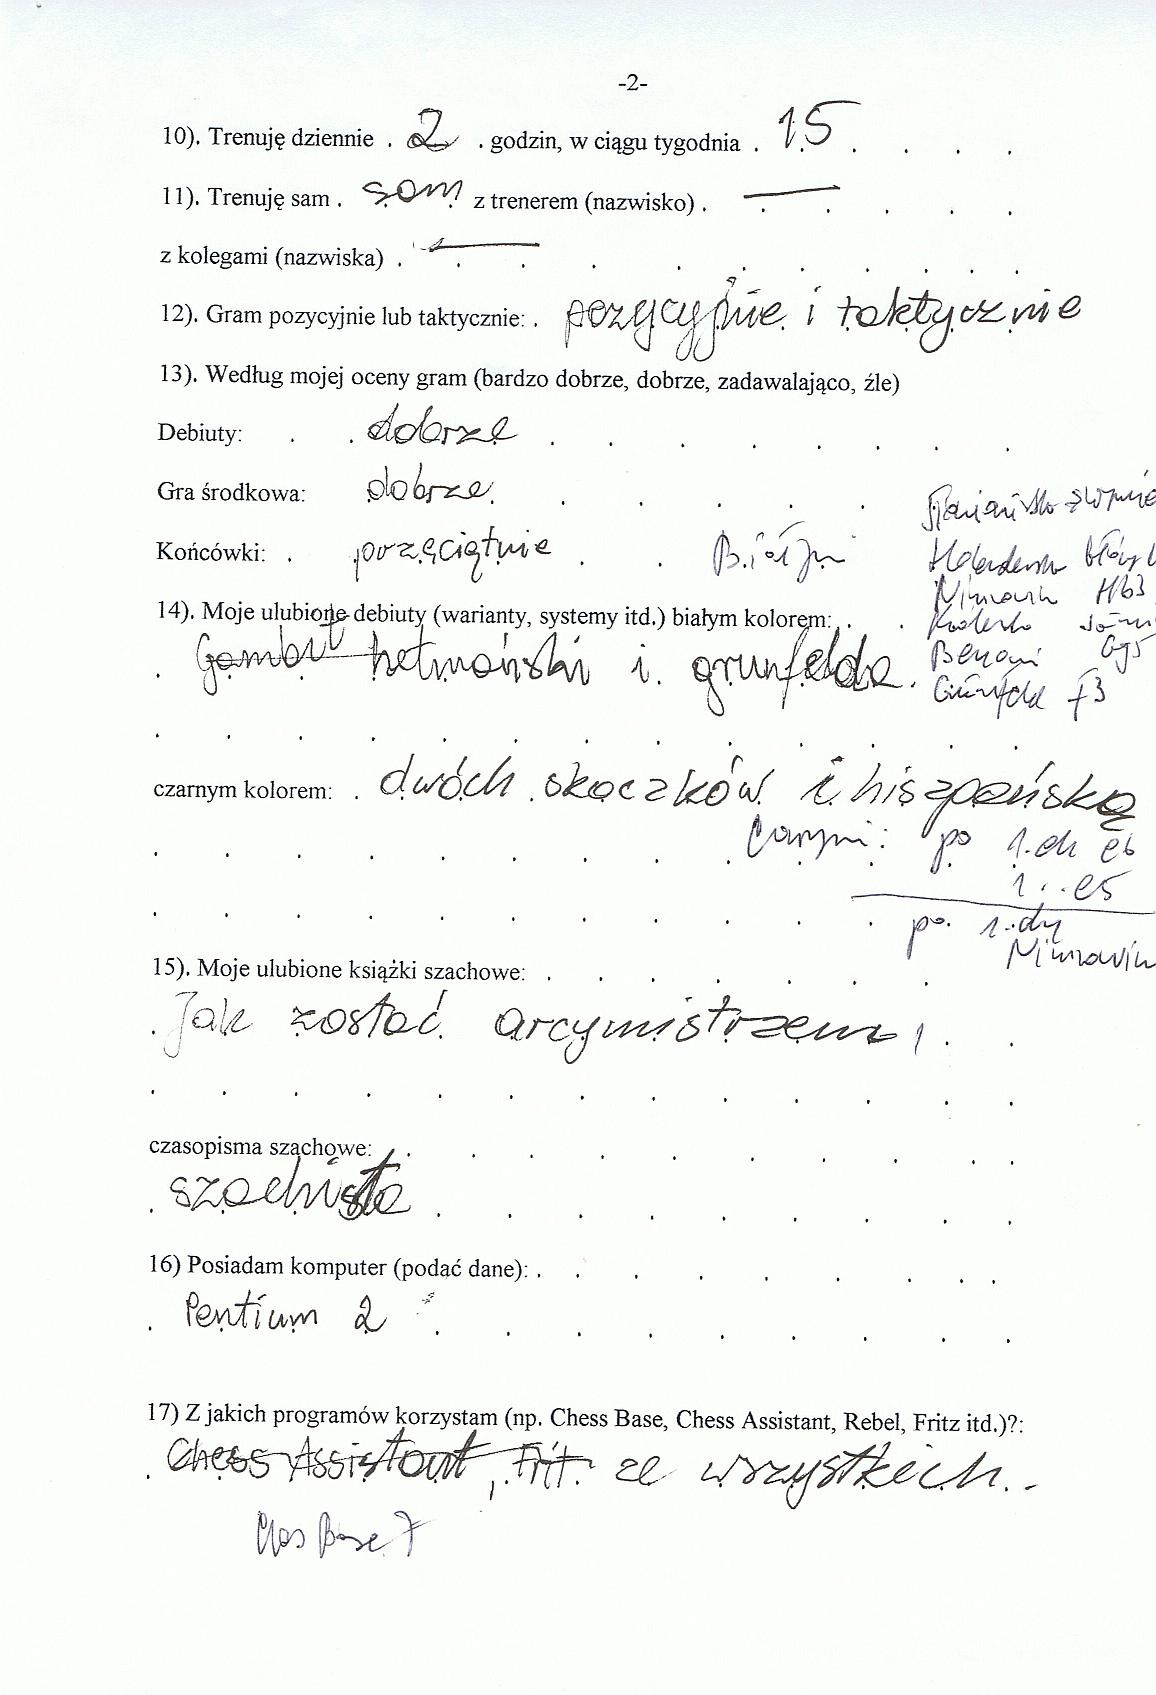 -2-
10). Trenuję dziennie . 2 . godzin, w ciągu tygodnia . 15
11). Trenuję sam . sam z trenerem (nazwisko) . —
z kolegami (nazwiska) . —
12). Gram pozycyjnie lub taktycznie: . pozycyjnie i taktycznie
13). Według mojej oceny gram (bardzo dobrze, dobrze, zadawalająco, źle)
Debiuty: dobrze
Gra środkowa: dobrze
Końcówki: . przęciętnie
Białymi
Holenderska
14). Moje ulubione debiuty (warianty, systemy itd.) białym kolorem:
Gambit hetmański i grunfelda
Benoni Gg5
f3
czarnym kolorem: . dwóch skoczków i hiszpańską
Czarnymi: po 1.e4 e6
1...e5
po 1.d4
15). Moje ulubione książki szachowe:
Jak zostać arcymistrzem
czasopisma szachowe:
szachista
16) Posiadam komputer (podać dane):
Pentium 2
17) Z jakich programów korzystam (np. Chess Base, Chess Assistant, Rebel, Fritz itd.)?:
Chess Assistant, Frit ze wszystkich
Ches Base 7